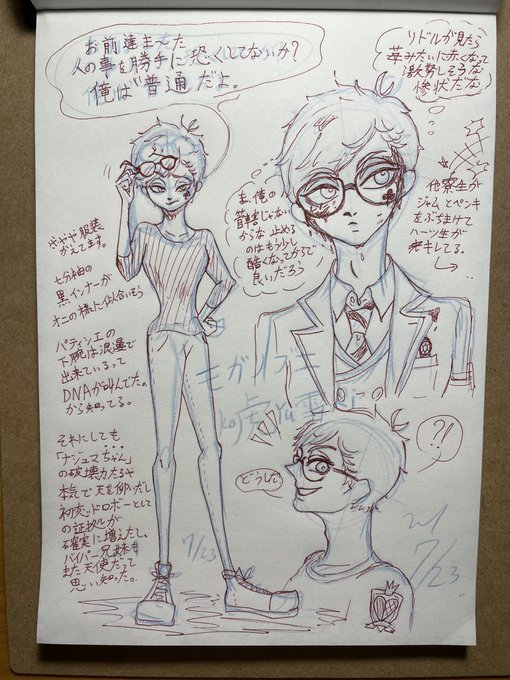 お前達またた
人の事を勝手に恐くしてないか?
俺は“普通”だよ。
リドルが見たら
苺みたいに赤くなって
激怒しそうな
惨状だな
他寮生が
ジャムとペンキ
をぶちまけて
ハーツ生が
発キしてる。
ま、俺の
管轄じゃない
からな 止める
のはもう少し
酷くなってからで
良いだろう
服装
かえてます。
七分袖の
黒インナーが
オニの様に似合いそう
パティシエの
下腕は浪漫で
出来ているって
DNAが叫んでた。
から知ってる。
それにしても
「ナジュマちゃん」
の破壊力たるや
本気で天を仰いだし
初恋ドロボーとして
の証拠が
確実に増えたし、
バイパー兄妹
また天使だって
思い知った。
どうした
?!
7/23
7/23